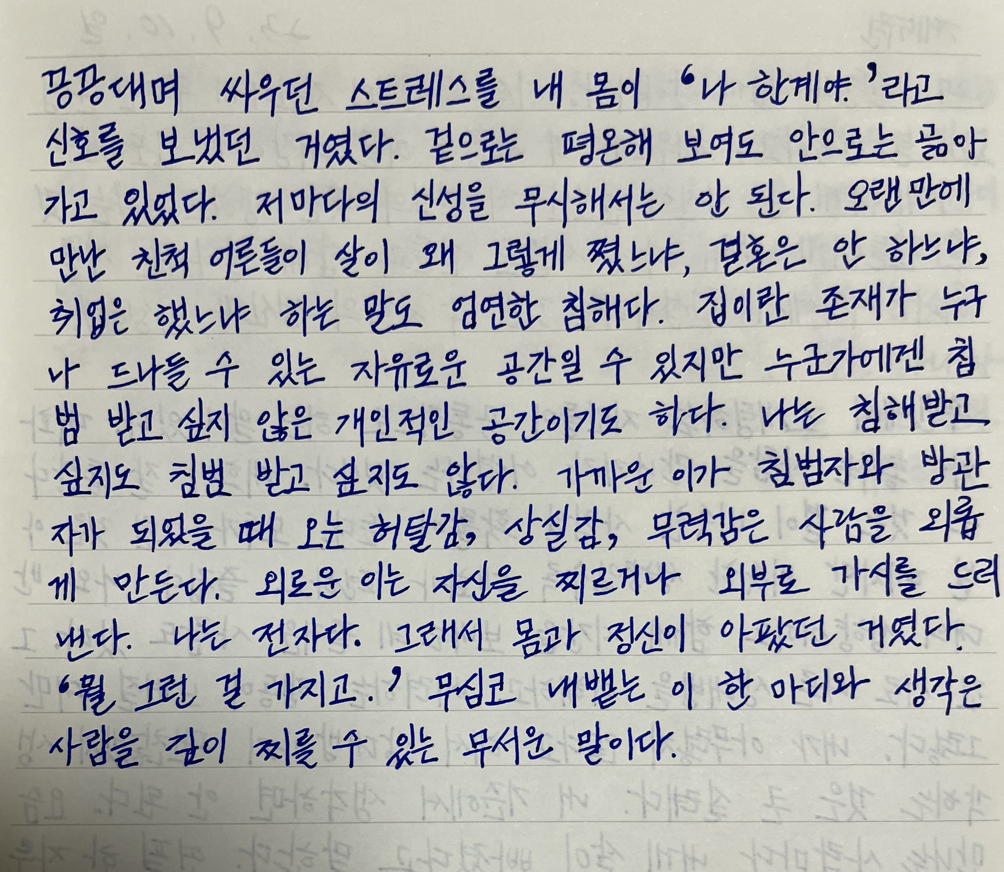 끙끙대며 싸우던 스트레스를 내 몸이 '나 한계야.'라고
신호를 보냈던 거였다. 겉으로는 평온해 보여도 안으로는 곪아
가고 있었다. 저마다의 신성을 무시해서는 안 된다. 오랜만에
만난 친척 어른들이 살이 왜 그렇게 쪘느냐, 결혼은 안 하느냐,
취업은 했느냐 하는 말도 엄연한 침해다. 집이란 존재가 누구
나 드나들 수 있는 자유로운 공간일 수 있지만 누군가에겐 침
범 받고 싶지 않은 개인적인 공간이기도 하다. 나는 침해받고
싶지도 침범 받고 싶지도 않다. 가까운 이가 침범자와 방관
자가 되었을 때 오는 허탈감, 상실감, 무력감은 사람을 외롭
게 만든다. 외로운 이는 자신을 찌르거나 외부로 가시를 드러
낸다. 나는 전자다. 그래서 몸과 정신이 아팠던 거였다.
'뭘 그런 걸 가지고.' 무심코 내뱉는 이 한 마디와 생각은
사람을 깊이 찌를 수 있는 무서운 말이다.